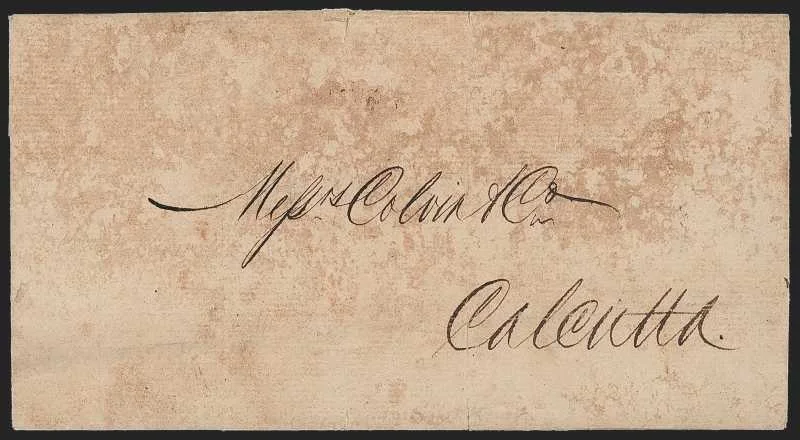 Messrs Colvin & Co
Calcutta.